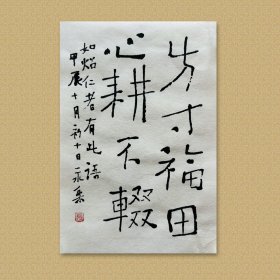 方寸福田
心耕不辍
如焰仁者有此语
甲辰十月初十日永集